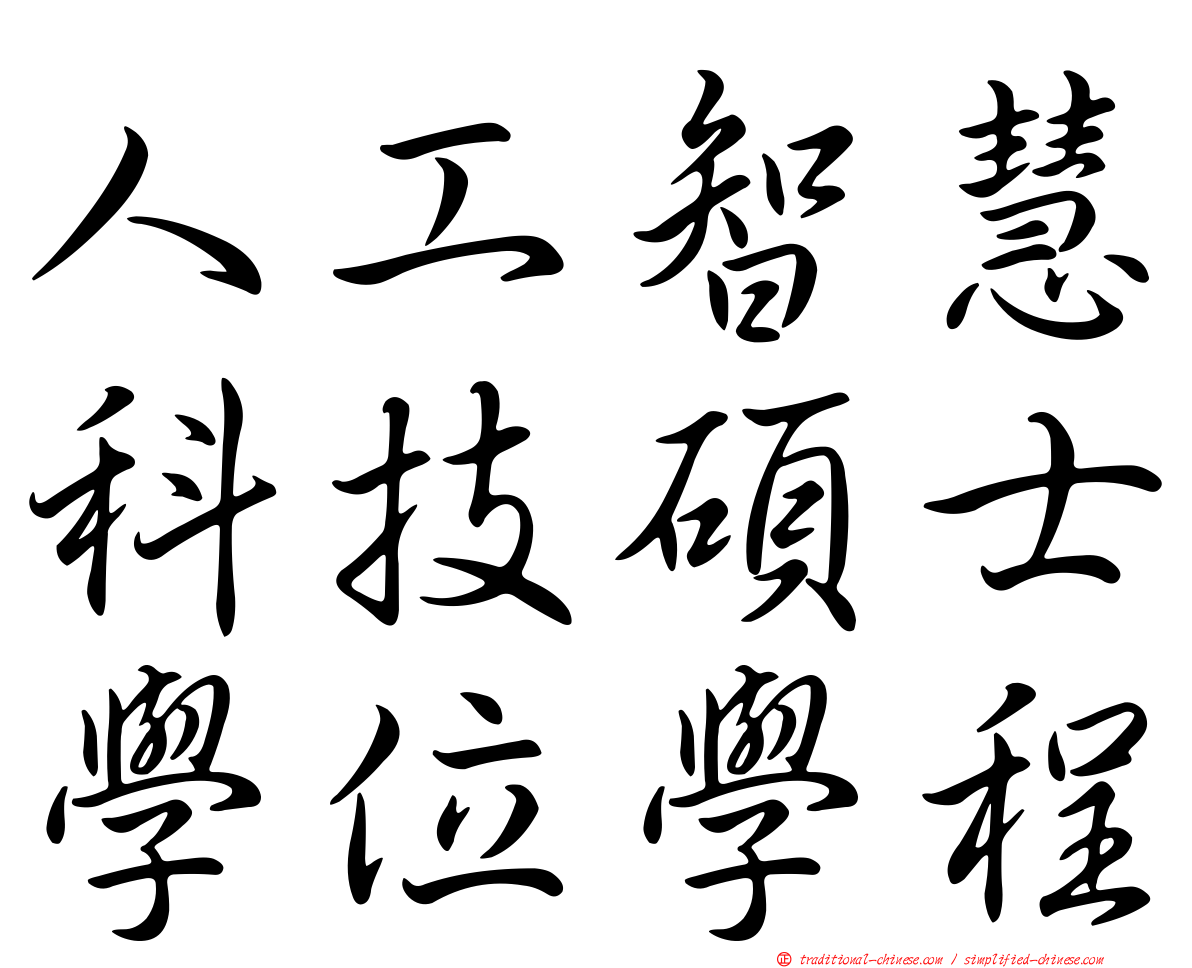 人工智慧
科技碩士
學位學程
正 traditional-chinese.com / simplified-chinese.com